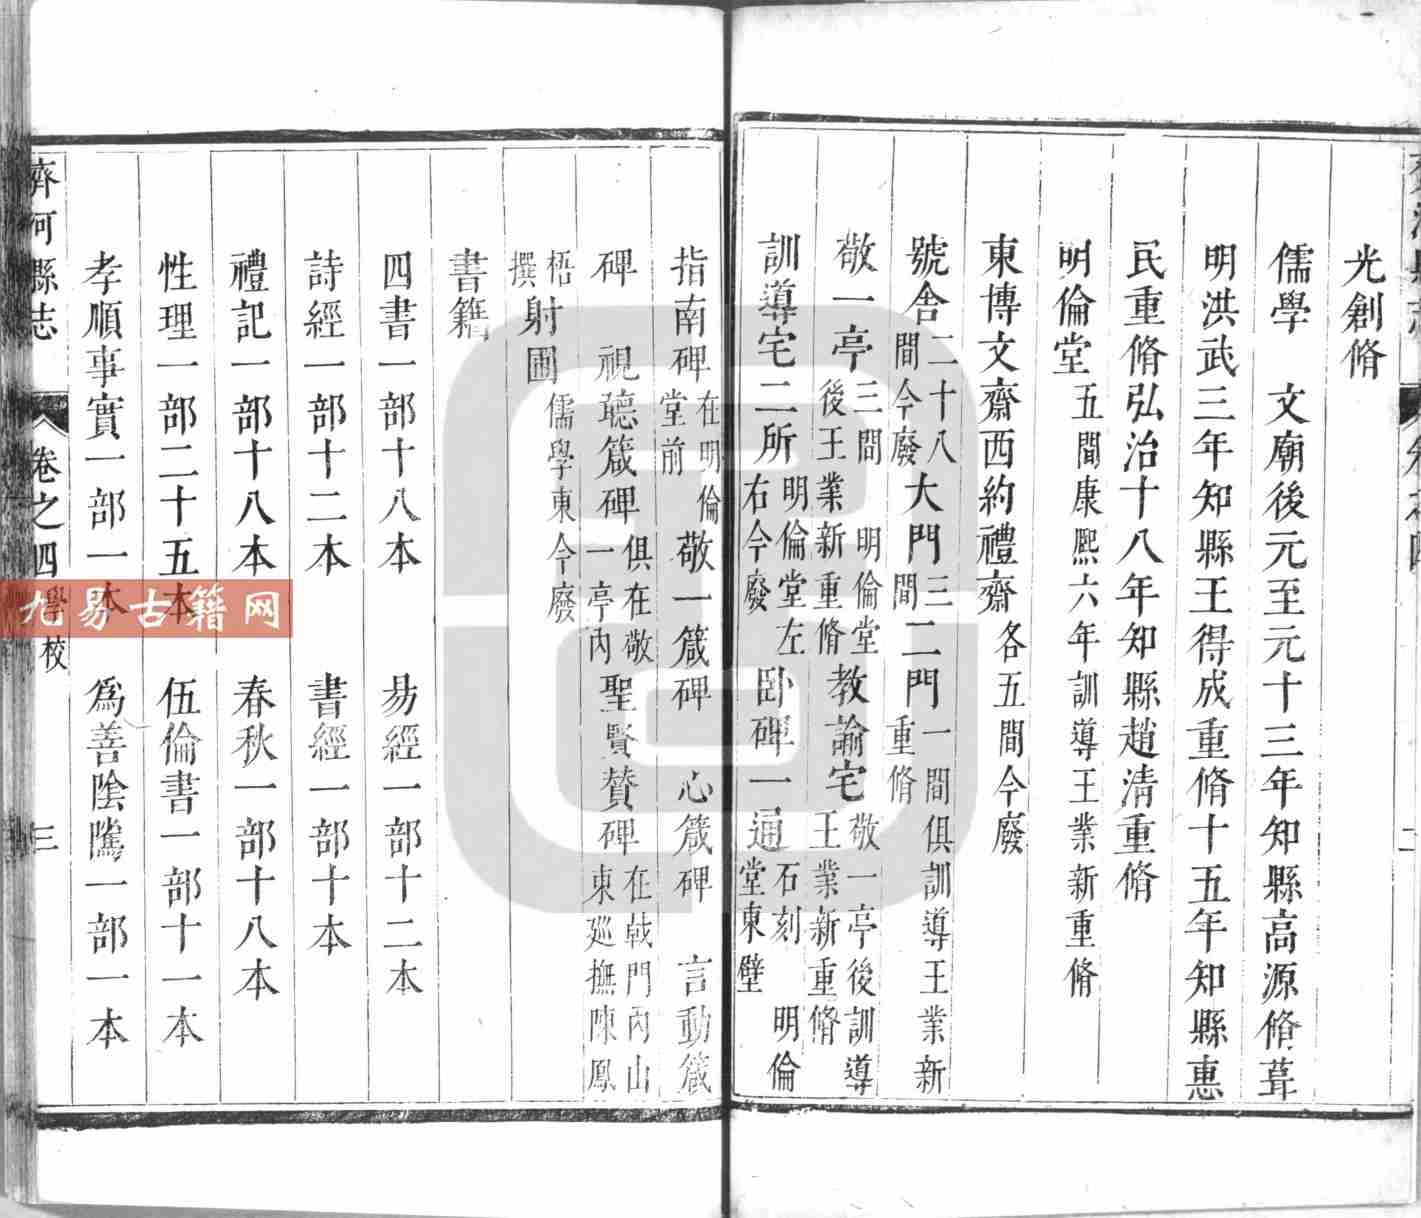 光創脩
儒學 文廟後元至元十三年知縣高源脩葺
明洪武三年知縣王得成重脩十五年知縣惠
民重脩弘治十八年知縣趙清重脩
明倫堂五間康熙六年訓導王業新重脩
東博文齋西約禮齋各五間今廢
號舍二十八間今廢大門三間二門一間俱訓導王業新重脩
敬一亭三間 明倫堂後王業新重脩教諭宅敬一亭後訓導王業新重脩
訓導宅二所明倫堂左右今廢臥碑一通石刻 明倫堂東壁
指南碑在明倫堂前敬一箴碑 心箴碑 言動箴
碑 視聽箴碑俱在敬一亭內聖賢贊碑在戟門內山東廵撫陳鳳
梧撰射圃儒學東今廢
書籍
四書一部十八本 易經一部十二本
詩經一部十二本 書經一部十本
禮記一部十八本 春秋一部十八本
性理一部二十五本 伍倫書一部十一本
孝順事實一部一本 為善陰騭一部一本
齊河縣志 卷之四 學校 三
九易古籍网